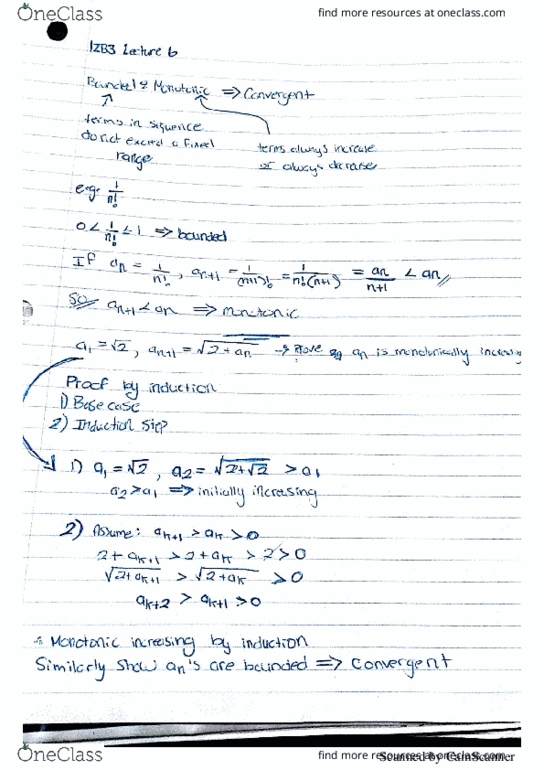 OneClass
find more resources at oneclass.com
1ZB3 Lecture 6
Bounded & Monotonic ⇒ Convergent
terms in sequence
do not exceed a fixed
range
terms always increase
or always decrease
e.g. 1/n!
0 < 1/n! ≤ 1 ⇒ bounded
If an = 1/n!, an+1 = 1/(n+1)! = 1/n!(n+1) = an/n+1 < an
So an+1 < an ⇒ monotonic
a1 = √2, an+1 = √2+an → Prove an is monotonically increasing
Proof by induction
1) Base case
2) Induction Step
1) a1 = √2, a2 = √2+√2 > a1
a2 > a1 ⇒ initially increasing
2) Assume: ak+1 > ak > 0
2 + ak+1 > 2 + ak > 2 > 0
√2+ak+1 > √2+ak > 0
ak+2 > ak+1 > 0
∴ Monotonic increasing by induction
Similarly show an's are bounded ⇒ convergent
OneClass
find more resources at oneclass.com
Scanned by CamScanner